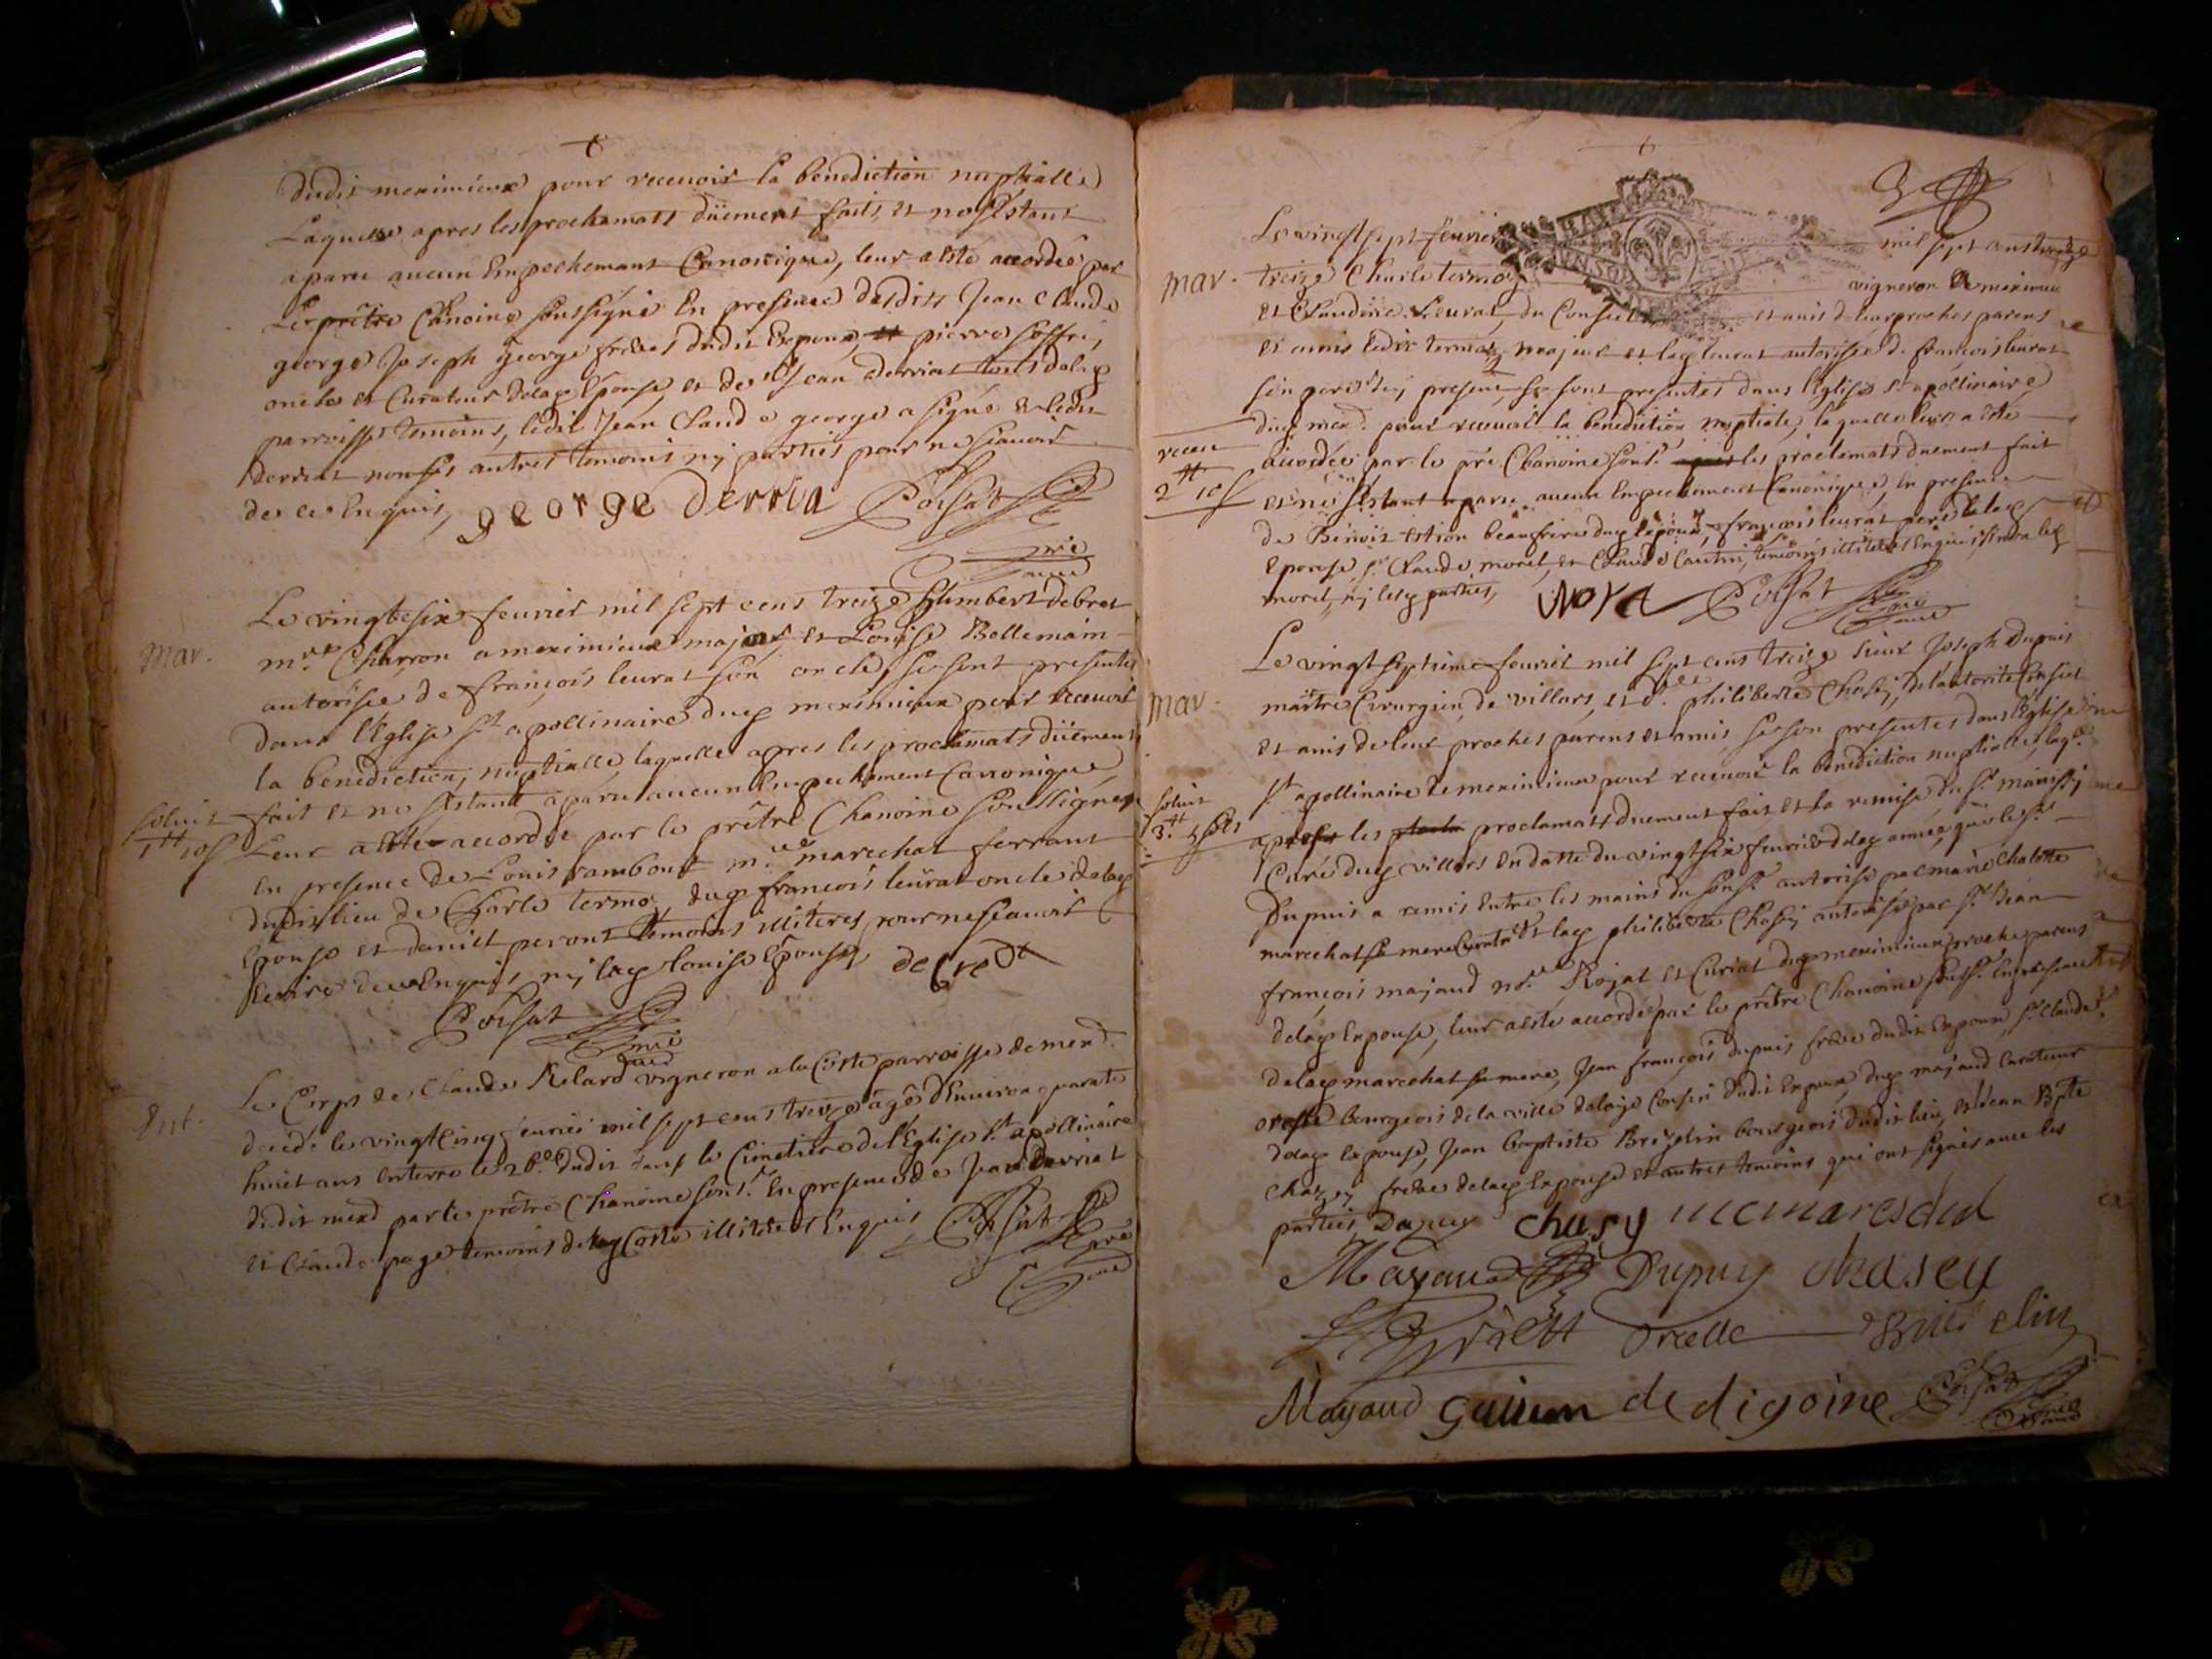 dudit meximieux pour recevoir la benediction nuptialle
Laquelle apres les proclamats düement faits, et ne sestant
aparu aucun Empechemant Canonique, leur a esté accordée par
Le prêtre Chanoine soussigné En presence desdits Jean Claude
george Joseph george freres dudit Epoux, et pierre
oncle et Curateur delad Epouse, et de Sr Jean derriat tous delad
parroisse temoins, ledit Jean Claude george a signé et ledit
derriat non les autres temoins nj parties pour ne scauoir
de ce Enquis, george derria Poisat
pre
mar.
Le vingtesix feurier mil sept cens treize humbert debret
mre Charron a meximieux majeur, et Louise Bellemain
autorisée de françois leurat son oncle, se sont presentés
dans l'Eglise St apollinaire dud meximieux pour receuoir
la benediction, nuptialle, laquelle apres les proclamats düement
soluit
1tt 10s
fait et ne sestant aparu aucun Empechement Canonique,
Leur a esté accordée par le prêtre Chanoine Soussigné
en presence de Louis rambout mre marechal ferrant
dudit lieu de Charle termoz, dud françois leurat oncle delad
Epouse et daniel peront temoins illiteres pour ne scauoir
Ecrire de ce Enquis nj lad Louise Epouse, debret
Poisat
pre
Ent.
Le Corps de Claude Relard vigneron a la Coste parroisse de mexd
decedé le vingt cinq feurier mil sept cens treize agé d'Enuiron quarante
huict ans enterré le 26e dudit dans le Cimetière de l'Eglise St apollinaire
dudit mexd par le prêtre Chanoine sousr. En presence de Jean derriat
et Claude page temoins delad Coste illiteres Enquis Poisat
pre
3
Le vingt sept feurier mil sept cens treize
mar.
treize Charle termoz vigneron a meximieux
et Claudine Leurat, du Conseil et auis de leur proches parens
et amis ledit termoz majeur et lad leurat autorisée de francois leurat
son pere icy present, se sont presentés dans l'Eglise St apollinaire
dud mexd. pour receuoir la benediction nuptiale, laquelle leur a este
receu
2tt 10s
accordée par le pre Chanoine sousr. apres les proclamats duement fait
et ne sestant aparu aucun Empechement Canonique, En presence
de Benoit estion beaufrere dud Epoux, françois leurat pere delad
Epouse, Sr Claude morel, et Claude Cautin, temoins illiteres Enquis, sinon led
morel, nj lesd parties, Poisat
pre
mar.
Le vingt septieme feurier mil sept cens treize Sieur Joseph Dupuis
maitre Cirurgien de villars, et dlle philiberte Chasej, del'autorite Conseil
et auis de leur proches parens et amis, se son presentes dans l'Eglise
St apollinaire de meximieux pour receuoir la benediction nuptialle, laqe
soluit
3tt
apres les proclamats duement fait et la remise du Sr
Curé dud villars en datte du vingt six feurier delad année que le Sr
Dupuis a remis Entre les mains du sousr. autorisé par marie chalotte
marechal sa mere et lad philiberte Chasej autorisée par Sr Jean
françois majaud nore Rojal et Curial dud meximieux proche parens
delad Epouse, leur a esté accordé par le prêtre Chanoine sousr. En presence
delad marechal sa mere, Jean françois dupuis frere dudit Epoux, Sr Claude
orselle bourgeois de la ville de Cousin dudit Epoux, dud majaud Curateur
delad Epouse, Jean baptiste Brizelin bourgeois dudit lieu, et Jean Bpte
Chazej frere delad Epouse et autres temoins qui ont signés auec les
parties, Dupuy chasy
Mayaud Dupuy chasey
orcelle Briselin
Mayaud guillem de digoine Poisat
pre